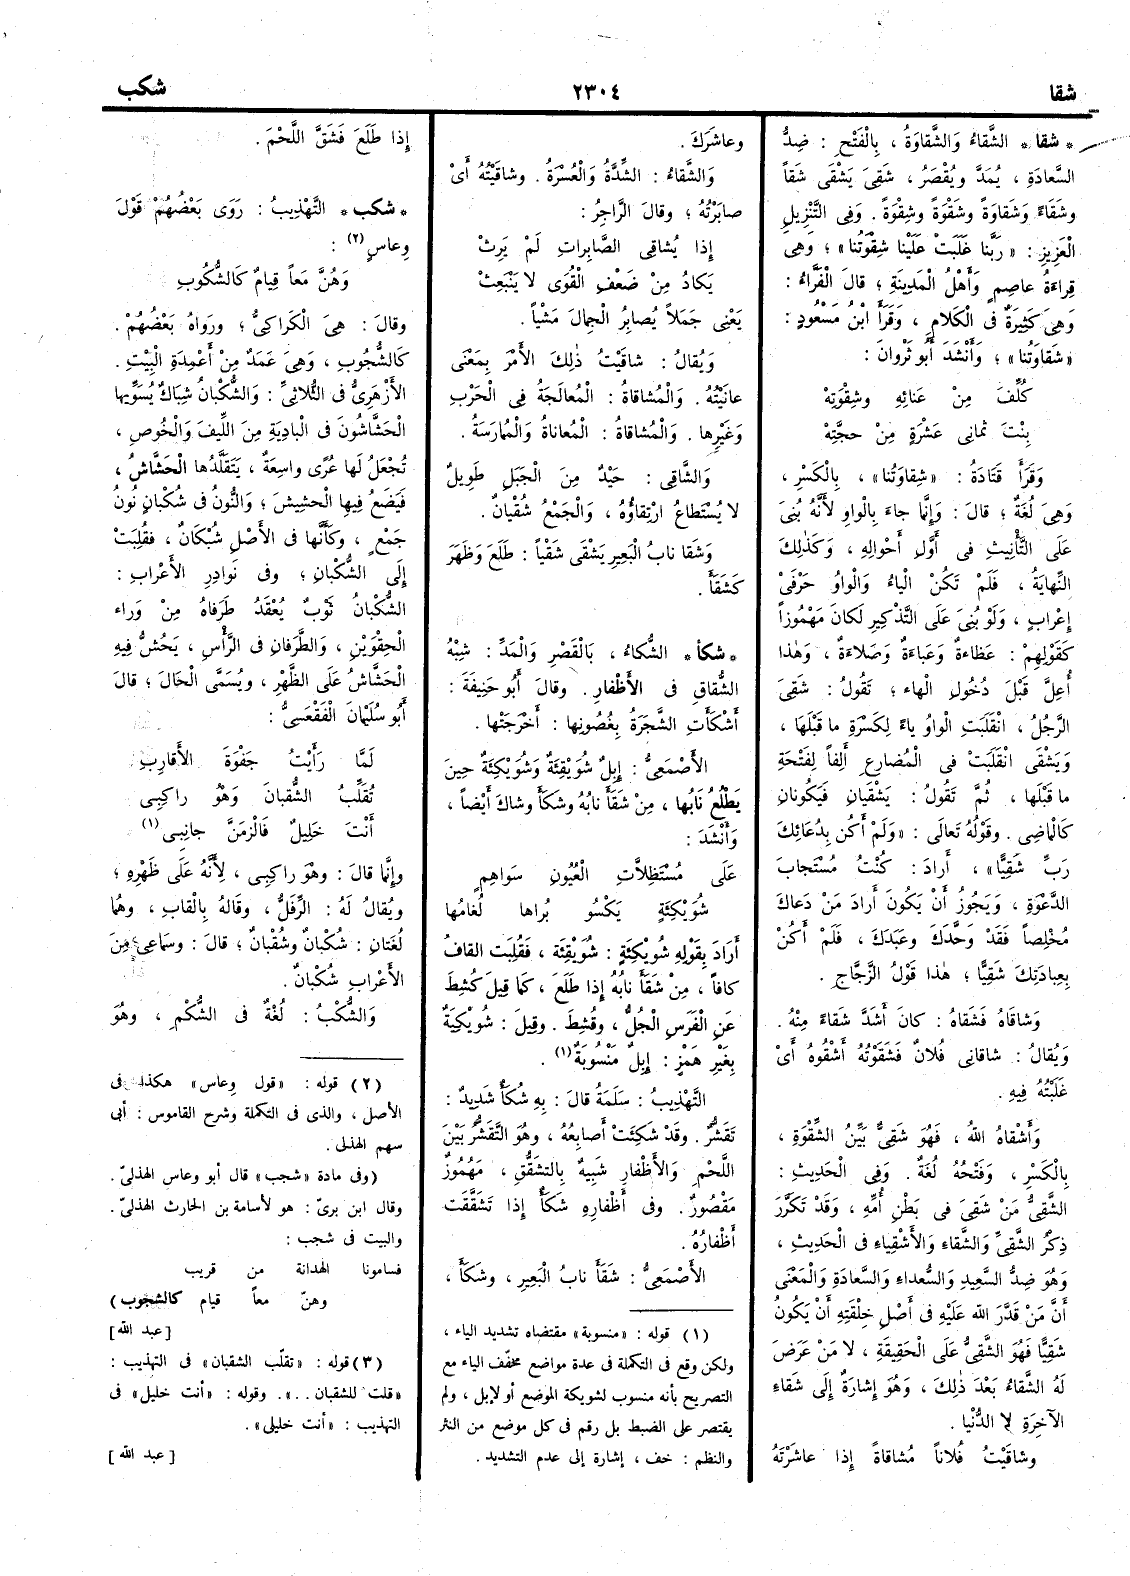 شقا
٢٣٠٤
شكب
* شقا * الشَّقاءُ وَالشَّقاوَةُ ، بِالْفَتْحِ : ضِدُّ
السَّعادَةِ ، يُمَدُّ ويُقْصَرُ ، شَقِىَ يَشْقَى شَقاً
وشَقاءً وشَقاوَةً وشَقْوَةً وشِقْوَةً . وَفِى التَّنْزِيلِ
الْعَزِيزِ : « رَبَّنا غَلَبَتْ عَلَيْنا شِقْوَتُنا » ؛ وهِىَ
قِراءَةُ عاصِمٍ وَأَهْلُ الْمَدِينَةِ ؛ قالَ الْفَرَّاءُ :
وَهِىَ كَثِيرَةٌ فى الْكَلامِ ، وَقَرَأَ ابْنُ مَسْعُودٍ :
«شَقاوَتُنا» ؛ وَأَنْشَدَ أَبُو ثَرْوانَ :
كُلِّفَ مِنْ عَنائِهِ وشِقْوَتِهْ
بِنْتَ ثَمانى عَشْرَةٍ مِنْ حجَّتِهْ
وَقَرَأَ قَتادَةُ : «شِقاوَتُنا» ، بِالْكَسْرِ ،
وَهِىَ لُغَةٌ ؛ قالَ : وَإِنَّما جاءَ بِالْواوِ لأَنَّهُ بُنِىَ
عَلَى التَّأْنِيثِ فى أَوَّلِ أَحْوالِهِ ، وَكَذٰلِكَ
النِّهايَةُ ، فَلَمْ تَكُنْ الْياءُ وَالْواوُ حَرْفَىْ
إِعْرابٍ ، وَلَوْ بُنِىَ عَلَى التَّذْكِيرِ لَكانَ مَهْمُوزاً
كَقَوْلِهِمْ : عَظاءَةٌ وَعَباءَةٌ وَصَلاءَةٌ ، وَهٰذا
أُعِلَّ قَبْلَ دُخُولِ الْهاءِ ؛ تَقُولُ : شَقِىَ
الرَّجُلُ ، انْقَلَبَتِ الْواوُ ياءً لِكَسْرَةِ ما قَبْلَها ،
وَيَشْقَى انْقَلَبَتْ فى الْمُضارِعِ أَلِفاً لِفَتْحَةِ
ما قَبْلَها ، ثُمَّ تَقُولُ : يَشْقَيانِ فَيَكُونانِ
كَالْماضِى . وقَوْلُهُ تَعالَى : «وَلَمْ أَكُنْ بِدُعائِكَ
رَبِّ شَقِيًّا» ، أَرادَ : كُنْتُ مُسْتَجابَ
الدَّعْوَةِ ، وَيَجُوزُ أَنْ يَكُونَ أَرادَ مَنْ دَعاكَ
مُخْلِصاً فَقَدْ وَحَّدَكَ وعَبَدَكَ ، فَلَمْ أَكُنْ
بِعِبادَتِكَ شَقِيًّا ؛ هٰذا قَوْلُ الزَّجَّاجِ .
وَشاقاهُ فَشَقاهُ : كانَ أَشَدَّ شَقاءً مِنْهُ .
وَيُقالُ : شاقانِى فُلانٌ فَشَقَوْتُهُ أَشْقُوهُ أَىْ
غَلَبْتُهُ فِيهِ .
وَأَشْقاهُ اللهُ ، فَهُوَ شَقِىٌّ بَيِّنُ الشِّقْوَةِ ،
بِالْكَسْرِ ، وَفَتْحُهُ لُغَةٌ . وَفِى الْحَدِيثِ :
الشَّقِىُّ مَنْ شَقِىَ فى بَطْنِ أُمِّهِ ، وَقَدْ تَكَرَّرَ
ذِكْرُ الشَّقِىِّ وَالشَّقاءِ وَالأَشْقِياءِ فى الْحَدِيثِ ،
وَهُوَ ضِدُّ السَّعِيدِ وَالسُّعَداءِ وَالسَّعادَةِ وَالْمَعْنَى
أَنَّ مَنْ قَدَّرَ الله عَلَيْهِ فى أَصْلِ خِلْقَتِهِ أَنْ يَكُونُ
شَقِيًّا فَهُوَ الشَّقِىُّ عَلَى الْحَقِيقَةِ ، لا مَنْ عَرَضَ
لَهُ الشَّقاءُ بَعْدَ ذٰلِكَ ، وَهُوَ إِشارَةٌ إِلَى شَقاءِ
الآخِرَةِ لا الدُّنْيا .
وشاقَيْتُ فُلاناً مُشاقاةً إِذا عاشَرْتَهُ
وعاشَرَكَ .
وَالشَّقاءُ : الشِّدَّةُ وَالْعُسْرَةُ . وشاقَيْتُهُ أَىْ
صابَرْتُهُ ؛ وقالَ الرَّاجِزُ :
إِذا يُشاقِى الصَّابِراتِ لَمْ يَرِثْ
يَكادُ مِنْ ضَعْفِ الْقُوَى لا يَنْبَعِثْ
يَعْنِى جَمَلاً يُصابِرُ الْجِمالَ مَشْياً .
وَيُقالُ : شاقَيْتُ ذٰلِكَ الأَمْرَ بِمَعْنَى
عانَيْتُهُ . وَالْمُشاقاةُ : الْمُعالَجَةُ فِى الْحَرْبِ
وَغَيْرِها . وَالْمُشاقاةُ : الْمُعاناةُ وَالْمُمارَسَةُ .
وَالشَّاقِى : حَيْدٌ مِنَ الْجَبَلِ طَوِيلٌ
لا يُسْتَطاعُ ارْتِقاؤُهُ ، وَالْجَمْعُ شُقْيانٌ .
وَشَقا نابُ الْبَعِيرِ يَشْقَى شَقْياً : طَلَعَ وَظَهَرَ
كَشَقَأَ .
* شكأ * الشُّكاءُ ، بَالْقَصْرِ وَالْمَدِّ : شِبْهُ
الشُّقاقِ فى الأَظْفارِ . وقالَ أَبُو حَنِيفَةَ :
أَشْكَأَتِ الشَّجَرَةُ بِغُصُونِها : أَخْرَجَتْها .
الأَصْمَعِىُّ : إِبِلٌ شُوَيْقِئَةٌ وَشُوَيْكِئَةٌ حِينَ
يَطْلُعُ نَابُها ، مِنْ شَقَأَ نابُهُ وشَكَأَ وشاكَ أَيْضاً ،
وَأَنْشَدَ :
عَلَى مُسْتَظِلَّاتِ الْعُيُونِ سَواهِمٍ
شُوَيْكِئَةٍ يَكْسُو بُراها لُغامُها
أَرادَ بِقَوْلِهِ شُوَيْكِئَةٍ : شُوَيْقِئَة ، فَقُلِبَتِ القافُ
كافاً ، مِنْ شَقَأَ نابُهُ إِذا طَلَعَ ، كَما قِيلَ كُشِطَ
عَنِ الْفَرَسِ الْجُلُّ ، وقُشِطَ . وقِيلَ : شُوَيْكِيَةٌ
بِغَيْرِ هَمْزٍ : إِبِلٌ مَنْسُوبَةٌ(١) .
التَّهْذِيبُ : سَلَمَةُ قالَ : بِهِ شُكَأٌ شَدِيدٌ :
تَقَشُّرٌ . وَقَدْ شَكِئَتْ أَصابِعُهُ ، وَهُوَ التَّقَشُّرُ بَيْنَ
اللَّحْمِ وَالأَظْفارِ شَبِيهٌ بِالتَّشَقُّقِ ، مَهْمُوزٌ
مَقْصُورٌ . وَفى أَظْفارِهِ شَكَأٌ إِذا تَشَقَّقَتْ
أَظْفارُهُ .
الأَصْمَعِىُّ : شَقَأَ نابُ الْبَعِيرِ ، وشَكَأَ ،
(١) قوله : «منسوبة» مقتضاه تشديد الياء ،
ولكن وقع فى التكملة فى عدة مواضع مخفّف الياء مع
التصريح بأنه منسوب لشويكة الموضع أو لإبل ، ولم
يقتصر على الضبط بل رقم فى كل موضع من النثر
والنظم : خف ، إشارة إلى عدم التشديد .
إِذا طَلَعَ فَشَقَّ اللَّحْمَ .
* شكب * التَّهْذِيبُ : رَوَى بَعْضُهُمْ قَوْلَ
وِعاسٍ(٢) :
وَهُنَّ مَعاً قِيامٌ كَالشُّكُوبِ
وقالَ : هِىَ الْكَراكِىُّ ؛ ورَواهُ بَعْضُهُمْ .
كَالشُّجُوبِ ، وَهِىَ عَمَدٌ مِنْ أَعْمِدَةِ الْبَيْتِ .
الأَزْهَرِىُّ فى الثُّلاثِىِّ : وَالشُّكْبانُ شِباكٌ يُسَوِّيها
الْحَشَّاشُونَ فى الْبادِيَةِ مِنَ اللِّيفِ وَالْخُوصِ ،
تُجْعَلُ لَها عُرًى واسِعَةٌ ، يَتَقَلَّدُها الْحَشَّاشُ ،
فَيَضَعُ فِيها الْحَشِيشَ ؛ وَالنُّونُ فى شُكْبانٍ نُونُ
جَمْعٍ ، وَكَأَنَّها فى الأَصْلِ شُبْكانٌ ، فَقُلِبَتْ
إِلَى الشُّكْبانِ ؛ وفى نَوادِرِ الأَعْرابِ :
الشُّكْبانُ ثَوْبٌ يُعْقَدُ طَرَفاهُ مِنْ وَراء
الْحِقْوَيْنِ ، وَالطَّرَفانِ فى الرَّأْسِ ، يَحُشُّ فِيهِ
الْحَشَّاشُ عَلَى الظَّهْرِ ، ويُسَمَّى الْحَالَ ؛ قالَ
أَبُو سُلَيْمانَ الْفَقْعَسِىُّ :
لَمَّا رَأَيْتُ جَفْوَةَ الأَقارِبِ
تُقَلِّبُ الشُّقْبانَ وَهْوَ راكِبِى
أَنْتَ خَلِيلٌ فَالْزَمَنَّ جانِبِى(١)
وإِنَّما قالَ : وهْوَ راكِبِى ، لأَنَّهُ عَلَى ظَهْرِهِ ؛
ويُقالُ لَهُ : الرِّفَلُّ ، وقالَهُ بِالْقافِ ، وهُما
لُغَتانِ : شُكْبانٌ وشُقْبانٌ ؛ قالَ : وسَماعِى مِنَ
الأَعْرابِ شُكْبانٌ .
وَالشُّكْبُ : لُغَةٌ فى الشُّكْمِ ، وهُوَ
(٢) قوله : «قول وِعاس» هكذا فى
الأصل ، والذى فى التكملة وشرح القاموس : أبى
سهم الهذلى .
(وفى مادة «شجب» قال أبو وعاس الهذلىّ .
وقال ابن برىّ : هو لأسامة بن الحارث الهذلىّ .
والبيت فى شجب :
فسامونا الهدانة من قريب
وهنّ معاً قيام كالشجوب)
[عبد الله]
(٣) قوله : «تقلّب الشقبان» فى التهذيب :
«قلت للشقبان . .» . وقوله : «أنت خليل» فى
التهذيب : «أنت خليلى» .
[عبد الله]